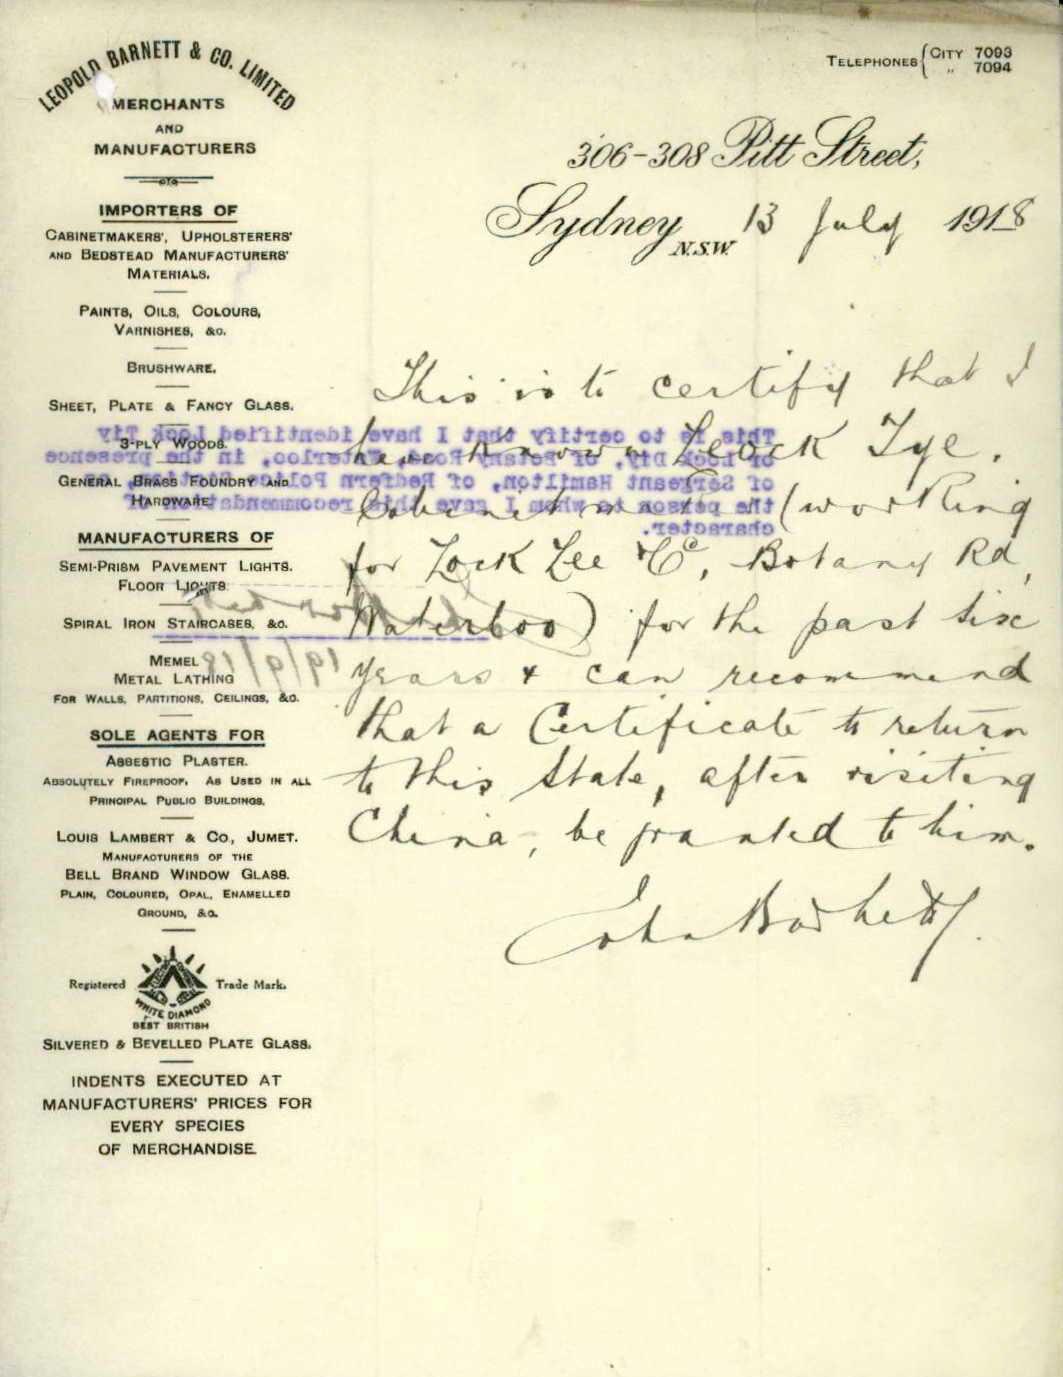 LEOPOLD BARNETT & CO. LIMITED
MERCHANTS
AND
MANUFACTURERS
IMPORTERS OF
CABINETMAKERS', UPHOLSTERERS'
AND BEDSTEAD MANUFACTURERS'
MATERIALS.
PAINTS, OILS, COLOURS,
VARNISHES, &c.
BRUSHWARE.
SHEET, PLATE & FANCY GLASS.
3-PLY WOODS.
GENERAL BRASS FOUNDRY AND
HARDWARE.
MANUFACTURERS OF
SEMI-PRISM PAVEMENT LIGHTS.
FLOOR LIGHTS
SPIRAL IRON STAIRCASES, &c.
MEMEL
METAL LATHING
FOR WALLS, PARTITIONS, CEILINGS, &c.
SOLE AGENTS FOR
ASBESTIC PLASTER.
ABSOLUTELY FIREPROOF. AS USED IN ALL
PRINCIPAL PUBLIC BUILDINGS.
LOUIS LAMBERT & CO, JUMET.
MANUFACTURERS OF THE
BELL BRAND WINDOW GLASS.
PLAIN, COLOURED, OPAL, ENAMELLED
GROUND, &c.
Registered Trade Mark.
WHITE DIAMOND
BEST BRITISH
SILVERED & BEVELLED PLATE GLASS.
INDENTS EXECUTED AT
MANUFACTURERS' PRICES FOR
EVERY SPECIES
OF MERCHANDISE.
TELEPHONES { CITY 7093
„ 7094
306-308 Pitt Street,
Sydney N.S.W. 13 July 1918
This is to certify that I
have known Leock Tye.
Cabinetmaker (working
for Lock Lee & Co, Botany Rd,
Waterloo) for the past six
years & can recommend
that a Certificate to return
to this State, after visiting
China, be granted to him.
John Barnett
This is to certify that I have identified Lock Tiy
or Lock Diy, of Botany Road, Waterloo, in the presence
of Sergeant Hamilton, of Redfern Police Station, as
the person to whom I gave this recommendation of
character.
19/9/18